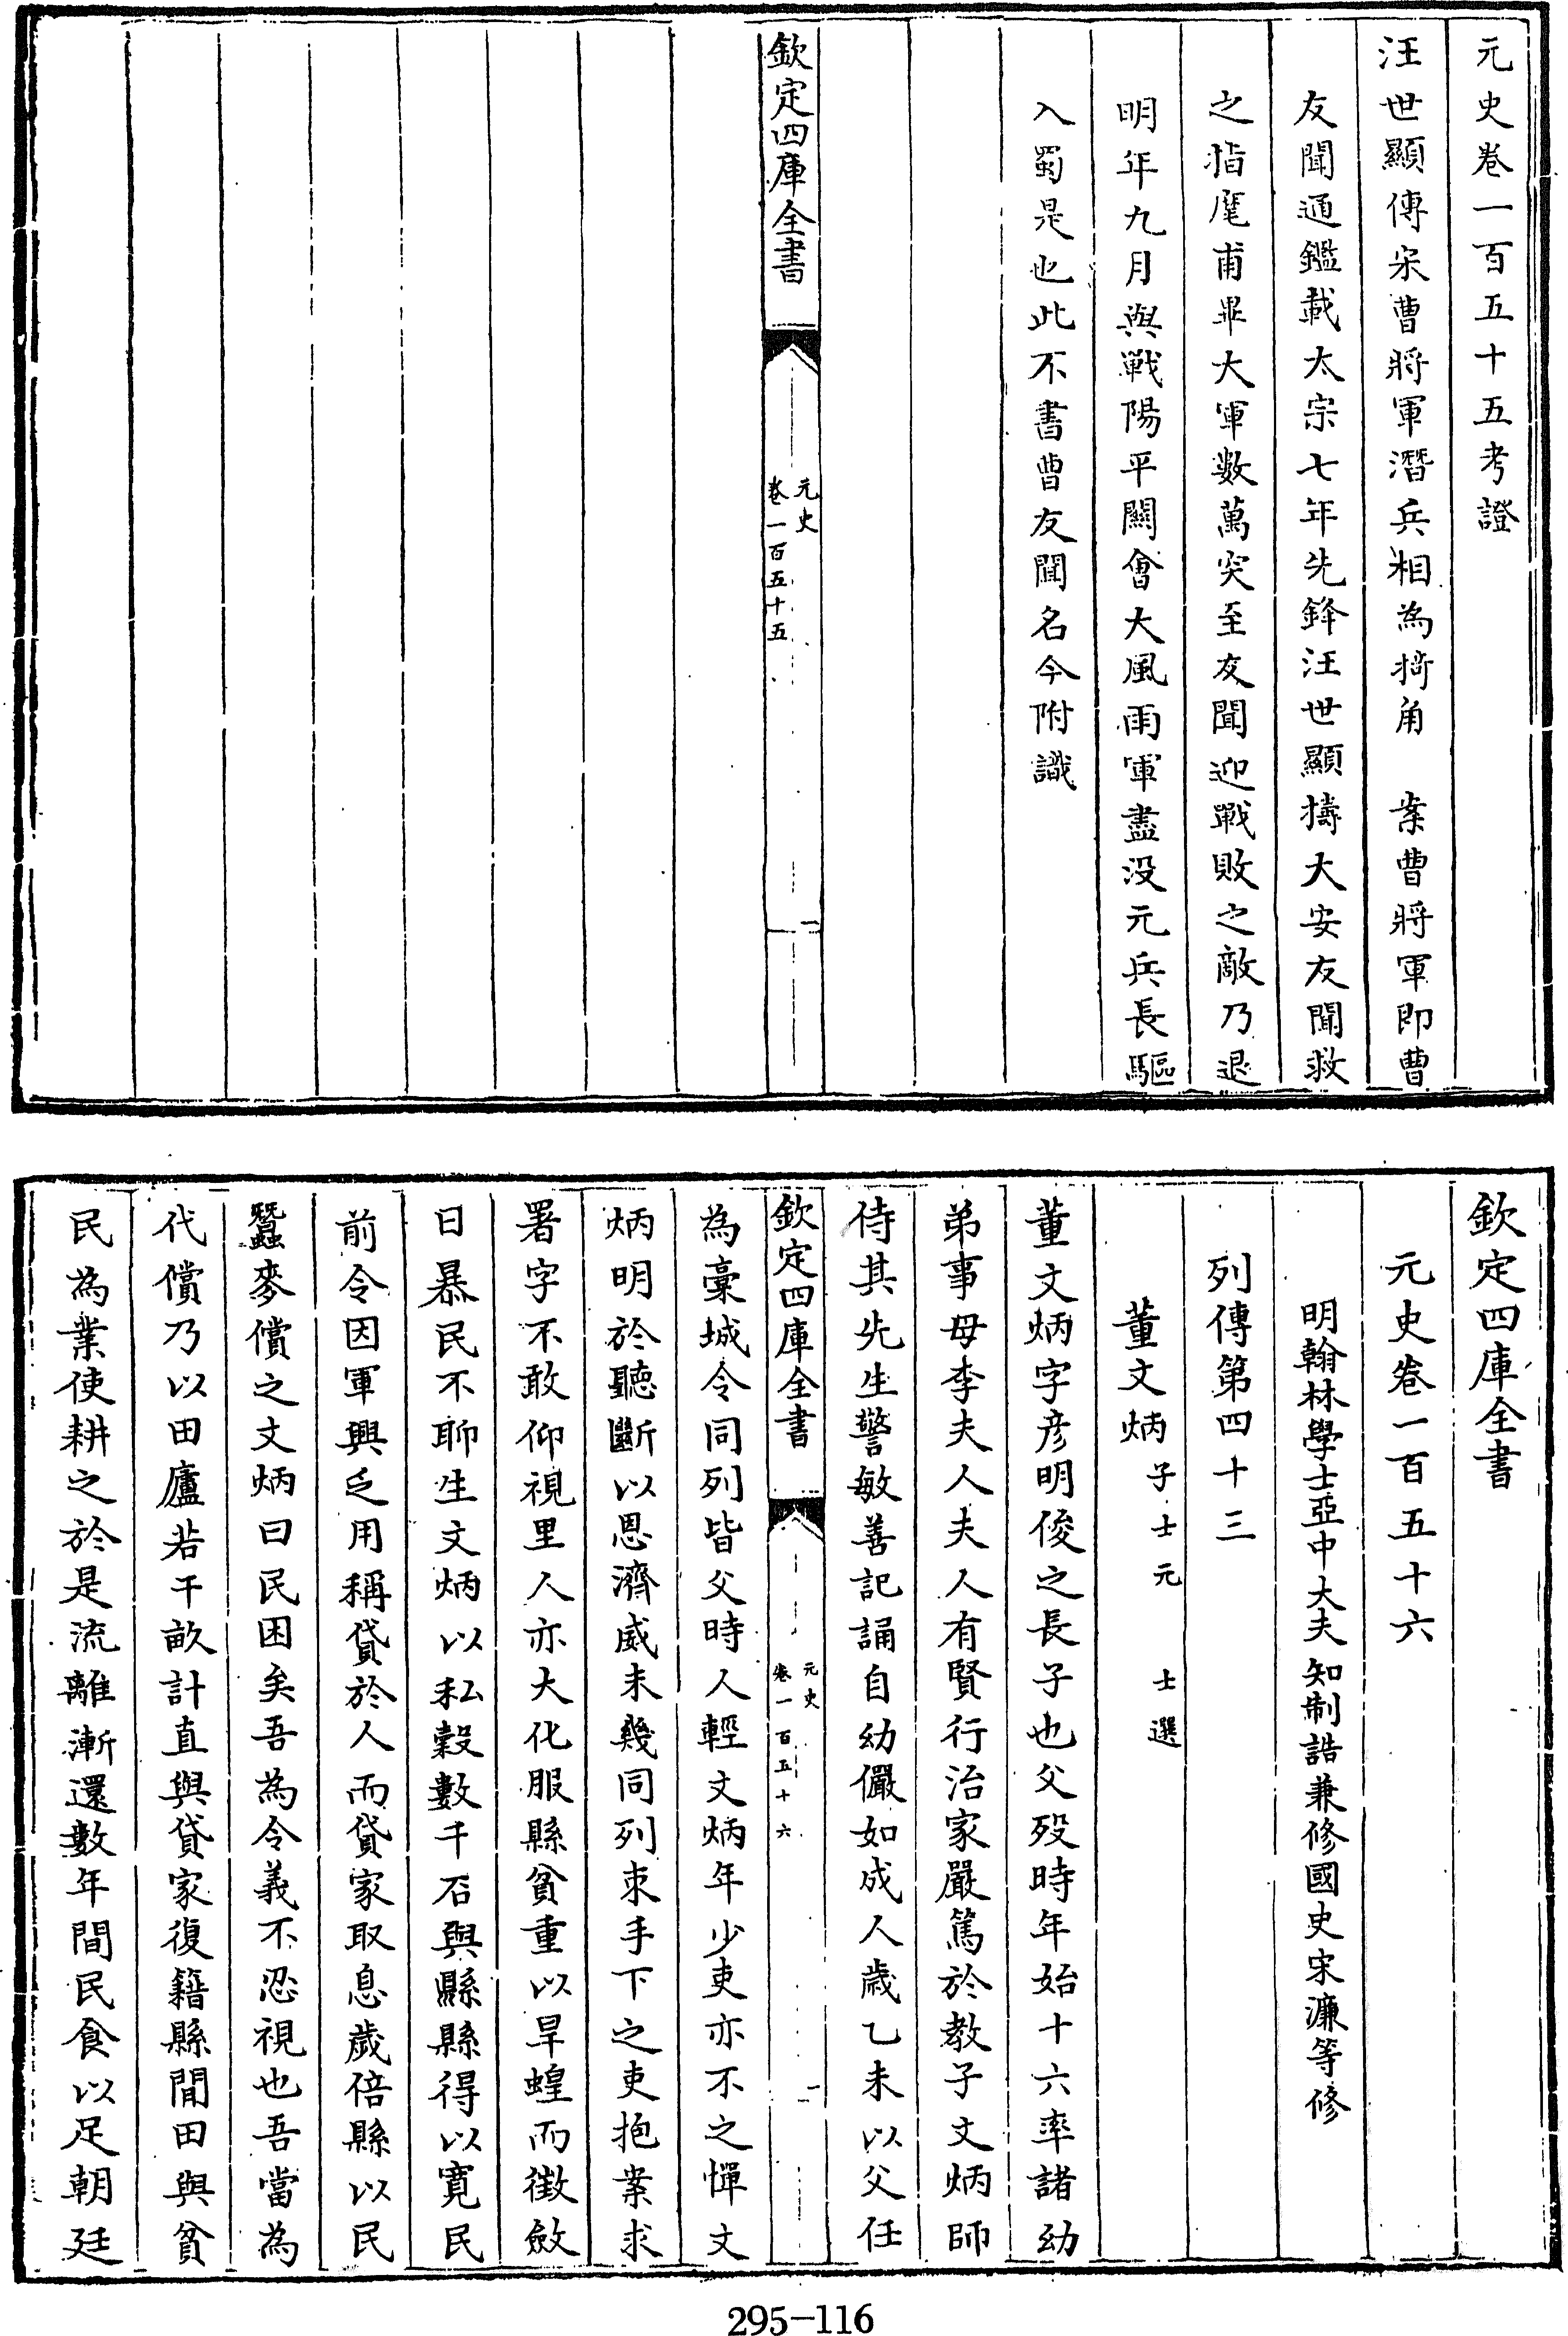 元史卷一百五十五考證
汪世顯傳宋曹將軍潛兵相為掎角　案曹將軍即曹
友聞通鑑載太宗七年先鋒汪世顯擣大安友聞救
之指麾甫畢大軍數萬突至友聞迎戰敗之敵乃退
明年九月與戰陽平關會大風雨軍盡没元兵長驅
入蜀是也此不書曹友聞名今附識
欽定四庫全書
元史
卷一百五十五
一
欽定四庫全書
元史卷一百五十六
明翰林學士亞中大夫知制誥兼修國史宋濂等修
列傳第四十三
董文炳子士元　士選
董文炳字彦明俊之長子也父歿時年始十六率諸幼
弟事母李夫人夫人有賢行治家嚴篤於教子文炳師
侍其先生警敏善記誦自幼儼如成人歲乙未以父任
欽定四庫全書
元史
卷一百五十六
一
為藁城令同列皆父時人輕文炳年少吏亦不之憚文
炳明於聽斷以恩濟威未幾同列束手下之吏抱案求
署字不敢仰視里人亦大化服縣貧重以旱蝗而徵斂
日暴民不聊生文炳以私穀數千石與縣縣得以寛民
前令因軍興乏用稱貸於人而貸家取息歲倍縣以民
蠶麥償之文炳曰民困矣吾為令義不忍視也吾當為
代償乃以田廬若干畝計直與貸家復籍縣閒田與貧
民為業使耕之於是流離漸還數年間民食以足朝廷
295-116